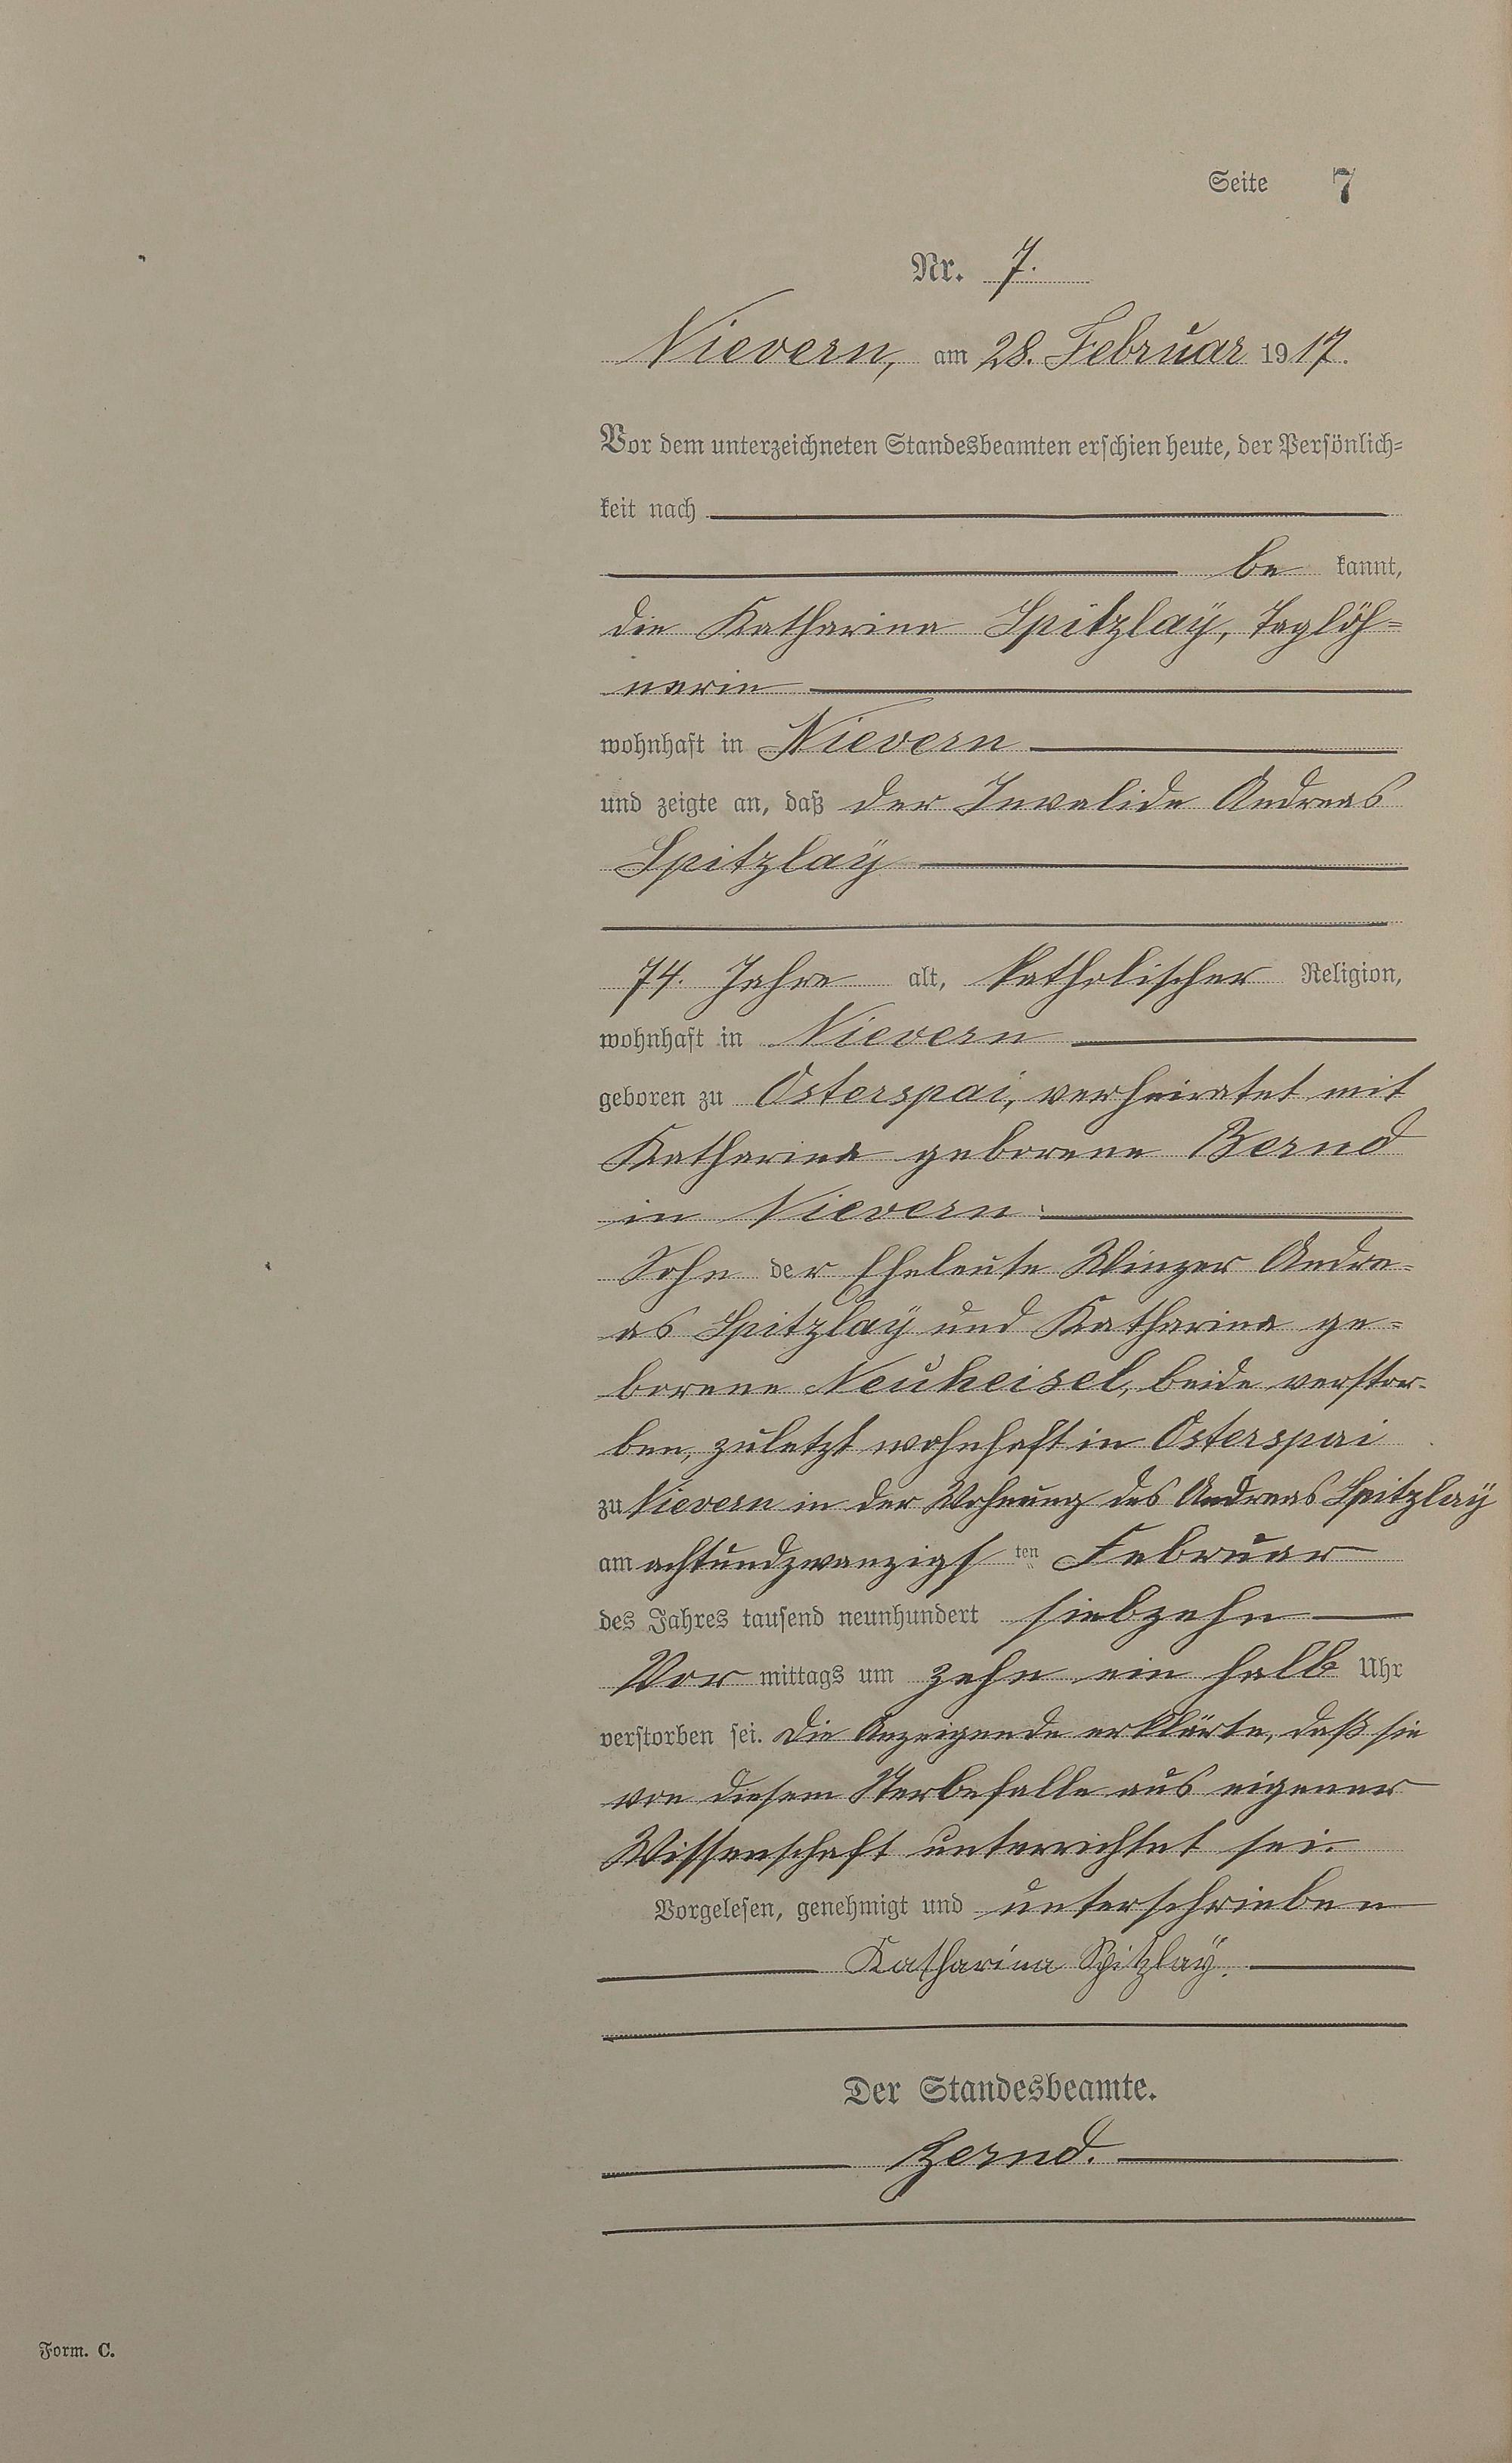 Seite 7
Nr. 7.
Nievern, am 28. Februar 1917.
Vor dem unterzeichneten Standesbeamten erschien heute, der Persönlich=
keit nach
be kannt,
die Katharina Spitzlaÿ, Taglöh=
nerin
wohnhaft in Nievern
und zeigte an, daß der Invalide Andreas
Spitzlaÿ
74. Jahre alt, katholischer Religion,
wohnhaft in Nievern
geboren zu Osterspai, verheiratet mit
Katharina geborene Bernd
in Nievern.
Sohn der Eheleute Winzer Andre=
as Spitzlaÿ und Katharina ge=
borene Neuheisel, beide verstor=
ben, zuletzt wohnhaft in Osterspai
zu Nievern in der Wohnung des Andreas Spitzlaÿ
am achtundzwanzigs ten Februar
des Jahres tausend neunhundert siebzehn
Vor mittags um zehn ein halb Uhr
verstorben sei. Die Anzeigende erklärte, daß sie
von diesem Sterbefalle aus eigener
Wissenschaft unterrichtet sei.
Vorgelesen, genehmigt und unterschrieben
Katharina Spitzlaÿ.
Der Standesbeamte.
Bernd.
Form. C.